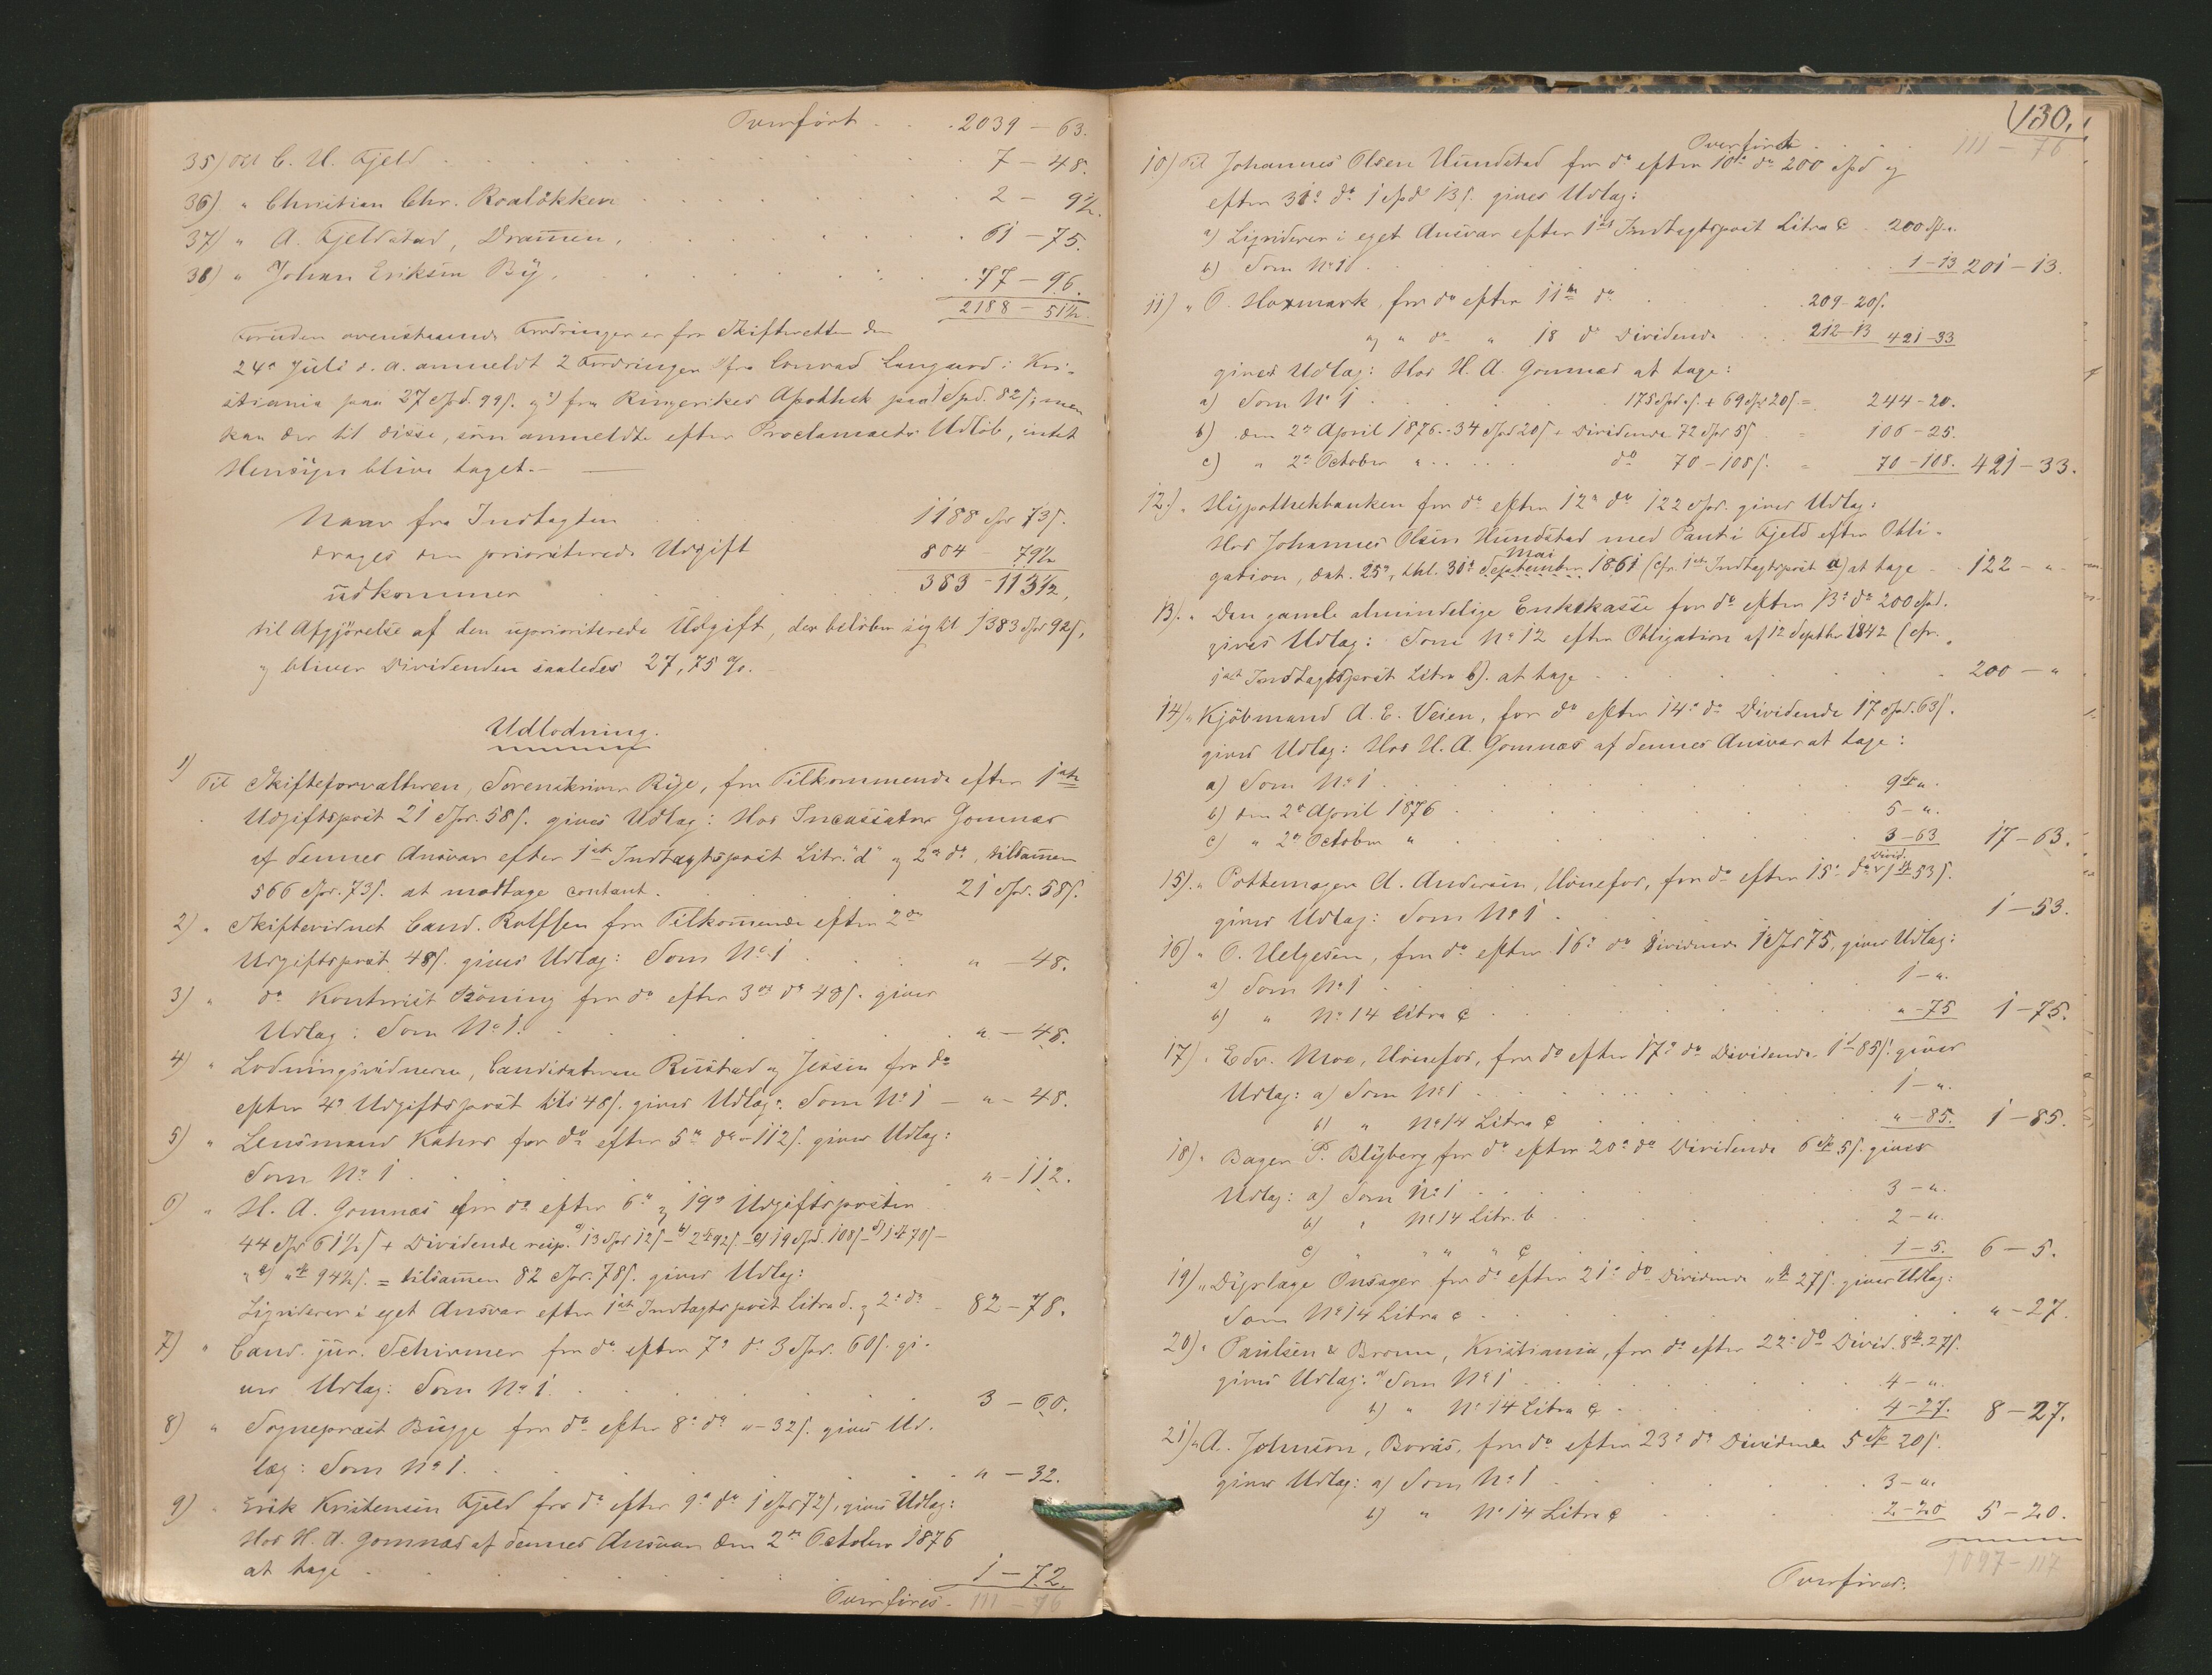 Overført . . . 2039 – 63.
35) Til C. U. Fjeld . . . 7 – 48.
36) " Christian Chr. Roaløkken . . . 2 – 9½.
37) " A. Fjeldstad, Dramen, . . . 61 – 75.
38) " Johan Eriksen By . . . 77 – 96.
2188 – 51½.
Foruden ovenstaaende Fordringer er for Skifteretten den
24de Juli d. a. anmeldt 2 Fordringer 1) fra Conrad Langaard i Kri-
stiania paa 27 Spd. 99 s. og 2) fra Ringerikes Apothek paa 1 Spd. 82 s; men
kan der til disse, som anmeldte efter Proclamaets Udløb, intet
Hensyn blive taget. —
Naar fra Indtægten . . . 1188 Spd 73 s.
drages den prioriterede Udgift 804 – 79½
udkommer . . . 383 – 113½,
til Afgjørelse af den uprioriterede Udgift, der beløber sig til 1383 Spd 92 s,
og bliver Dividenden saaledes 27,75 %.
Udlodning.
1) Til Skifteforvalteren, Sorenskriver Rye, for Tilkommende efter 1ste
Udgiftspost 21 Spd. 58 s. gives Udlæg: Hos Incassator Gomnæs
af dennes Ansvar efter 1ste Indtægtspost Litr. "d" og 2den do, tilsammen
566 Spd. 73 s. at modtage contant . . . 21 Spd. 58 s.
2) " Skiftevidnet Cand. Rolffsen for Tilkommende efter 2den
Udgiftspost 48 s. gives Udlæg: Som No 1 . . . " – 48.
3) " do Kontorist Bøning for do efter 3die do 48 s. gives
Udlæg: Som No 1. . . . " – 48.
4) " Lodningsvidnerne, Candidaterne Rustad og Jessen for do
efter 4de Udgiftspost tils 48 s. gives Udlæg: Som No 1 – " – 48.
5) " Lensmand Kahrs for do efter 5te do " – 112 s. gives Udlæg:
Som No 1 . . . " – 112.
6) " H. A. Gomnæs for do efter 6te og 19de Udgiftsposter
44 Spd 61½ s + Dividende resp. a) 13 Spd 12 s – b) 2 Spd 92 s. – c) 19 Spd. 108 s – d) 1 Spd 70 s –
" e) " Spd 94½ s. = tilsammen 82 Spd. 78 s. gives Udlæg:
Liqviderer i eget Ansvar efter 1ste Indtægtspost Litra d. og 2den do – 82 – 78.
7) " Cand. jur. Schirmer for do efter 7de do 3 Spd. 60 s. gi-
ves Udlæg: Som No 1. . . . 3 – 60.
8) " Sogneprest Bugge for do efter 8de do " – 32 s. gives Ud-
læg: Som No 1. . . . " – 32.
9) " Erik Kristensen Fjeld for do efter 9de do 1 Spd 72 s, gives Udlæg:
Hos H. A. Gomnæs af dennes Ansvar den 2den October 1876
at tage . . . 1 – 72.
Overføres – 111 – 76
130.
Overført . . . 111 – 76
10) Til Johannes Olsen Hundstad for do efter 10de do 200 Spd og
efter 31te do 1 Spd 13 s. gives Udlæg:
a) Liqviderer i eget Ansvar efter 1ste Indtægtspost Litra c . 200 Spd ".
b) Som No 1 . . . 1 – 13 201 – 13.
11) " O. Hoxmark, for do efter 11te do . . . 209 – 20 s.
og " do " 18 do Dividende . . . 212 – 13 421 – 33
gives Udlæg: Hos H. A. Gomnæs at tage:
a) Som No 1 . . . 175 Spd " s. + 69 Spd 20 s. = 244 – 20.
b) den 2den April 1876 – 34 Spd 20 s + Dividende 72 Spd 5 s = 106 – 25.
c) " 2den October " . . . do 70 – 108 s. = 70 – 108. 421 – 33.
12) " Hypothekbanken for do efter 12te do 122 Spd. gives Udlæg:
Hos Johannes Olsen Hundstad med Pant i Fjeld efter Obli-
gation, dat. 25de, thl. 31te September Mai 1861 (cfr. 1ste Indtægtspost a) at tage – 122 – "
13) " Den gamle almindelige Enkekasse for do efter 13de do 200 Spd.
gives Udlæg: Som No 12 efter Obligation af 12 Septbr 1842 (cfr.
1ste Indtægtspost Litra b). at tage . . . 200 – "
14) " Kjøbmand A. E. Veien, for do efter 14de do Dividende 17 Spd. 63 s.
gives Udlæg: Hos H. A. Gomnæs af dennes Ansvar at tage:
a) Som No 1 . . . 9 Spd ".
b) den 2den April 1876 . . . 5 – ".
c) " 2den October " . . . 3 – 63 17 – 63.
15) " Pottemager A. Andersen, Hønefos, for do efter 15de do Divid. 1 Spd 53 s.
gives Udlæg: Som No 1 . . . 1 – 53.
16) " O. Helgesen, for do efter 16de do Dividende 1 Spd 75, gives Udlæg:
a) Som No 1 . . . 1 – ".
b) " No 14 Litra c . . . " – 75 1 – 75.
17) " Edv. Moe, Hønefos, for do efter 17de do Dividende 1 Spd 85 s. gives
Udlæg: a) Som No 1 . . . 1 – ".
b) " No 14 Litra c . . . " – 85. 1 – 85.
18) " Bager P. Blyberg for do efter 20de do Dividende 6 Spd 5 s. gives
Udlæg: a) Som No 1 . . . 3 – ".
b) " No 14 Litr. b . . . 2 – ".
c) " " " " c . . . 1 – 5. 6 – 5.
19) " Dyrlæge Onsager for do efter 21de do Dividende " Spd 27 s. gives Udlæg:
Som No 14 Litra c . . . " – 27.
20) " Paulsen & Brown, Kristiania, for do efter 22de do Divid. 8 Spd. 27 s.
gives Udlæg: a) Som No 1 . . . 4 – ".
b) " No 14 Litra c . . . 4 – 27. 8 – 27.
21) " A. Johnson, Borås, for do efter 23de do Dividende 5 Spd 20 s.
gives Udlæg: a) Som No 1 . . . 3 – ".
b) " No 14 Litra c . . . 2 – 20 5 – 20.
1097 – 117
Overføres.